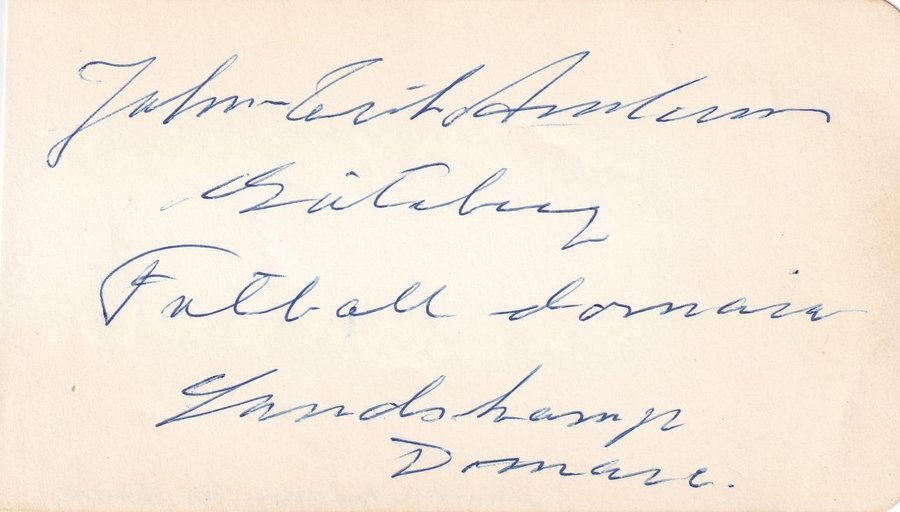 John-Erik Andersson
Göteborg
Fotboll domare
Landskamp
Domare.